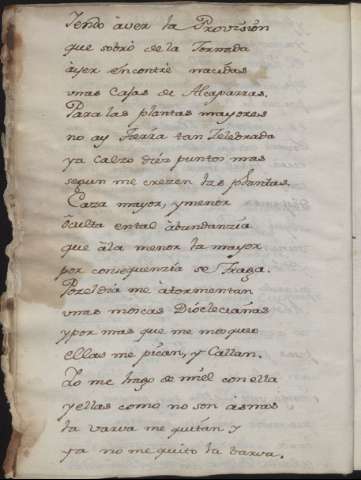 Iendo àver la Provisiòn
que sobrò de la Tornada
àyer encontrè nacidas
unas Cajas de Alcaparras.
Para las plantas mayores
no ay tierra tan
ya Calzo diez puntos mas
segun me crezen las plantas.
Caza mayor, y menor
ental àbundanzia
que àla menor la mayor
por consequenzia se Traga.
Por el dia me àtormentan
unas moscas Diòclecianas
y por mas que me mosqueo
ellas me pican, y Callan.
Yo me hago de miel con ella
y ellas como no son àsnas
la varva me quitan y
ya no me quito la varva.